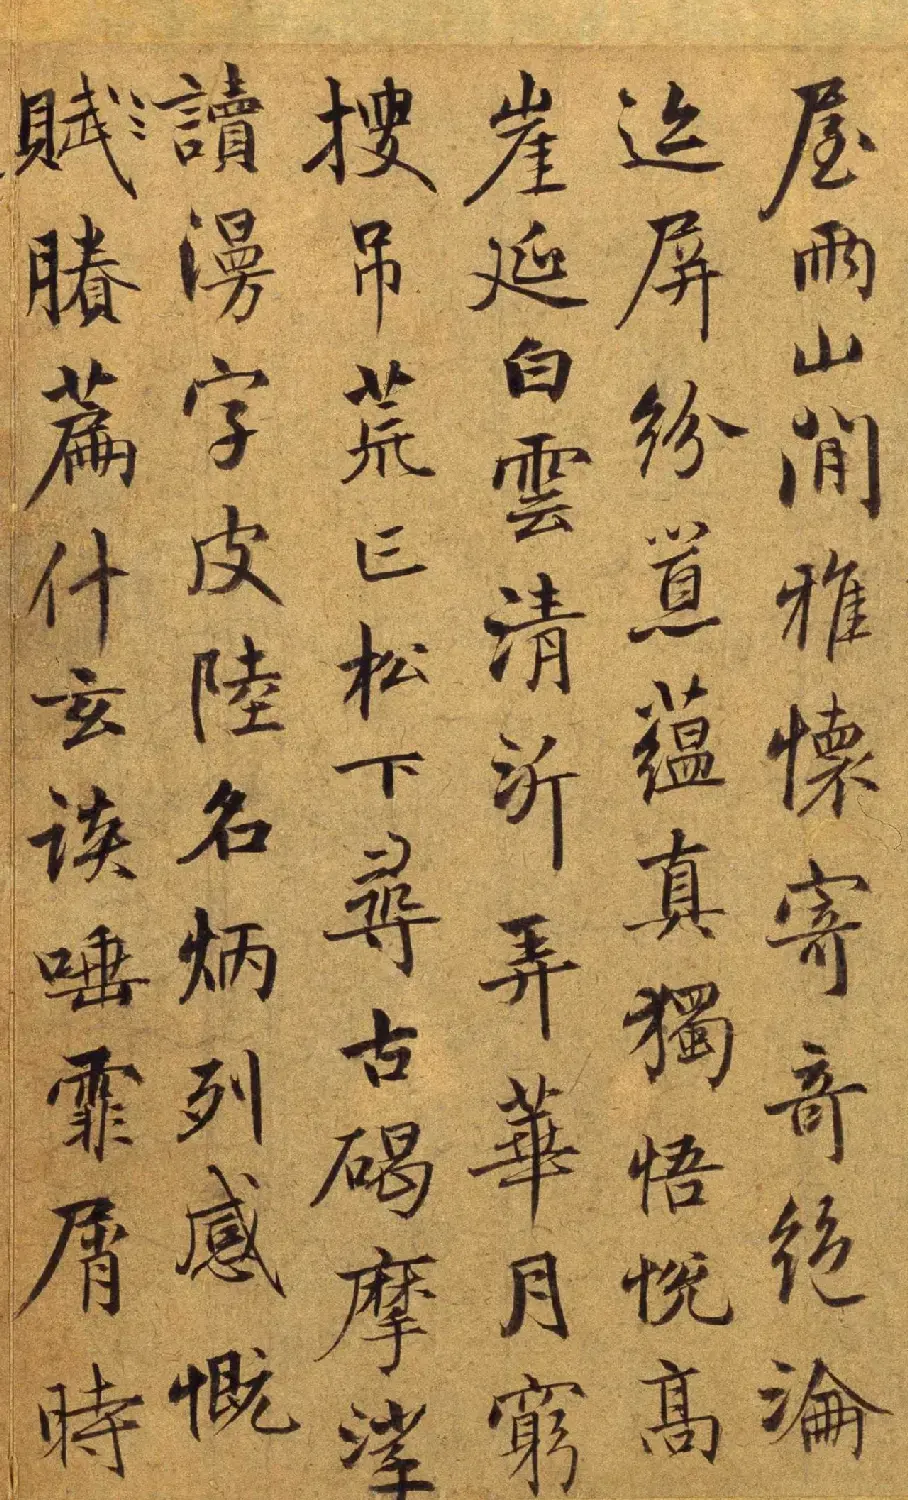 屋兩山間雅懷寄奇絕淪
迹屏紛蒠蘊真獨悟恱高
崖延白雲清沂弄華月窮
搜吊荒亡松下尋古碣摩挲
讀漫字皮陸名炳列感慨
賦賸篇什玄談唾霏屑時